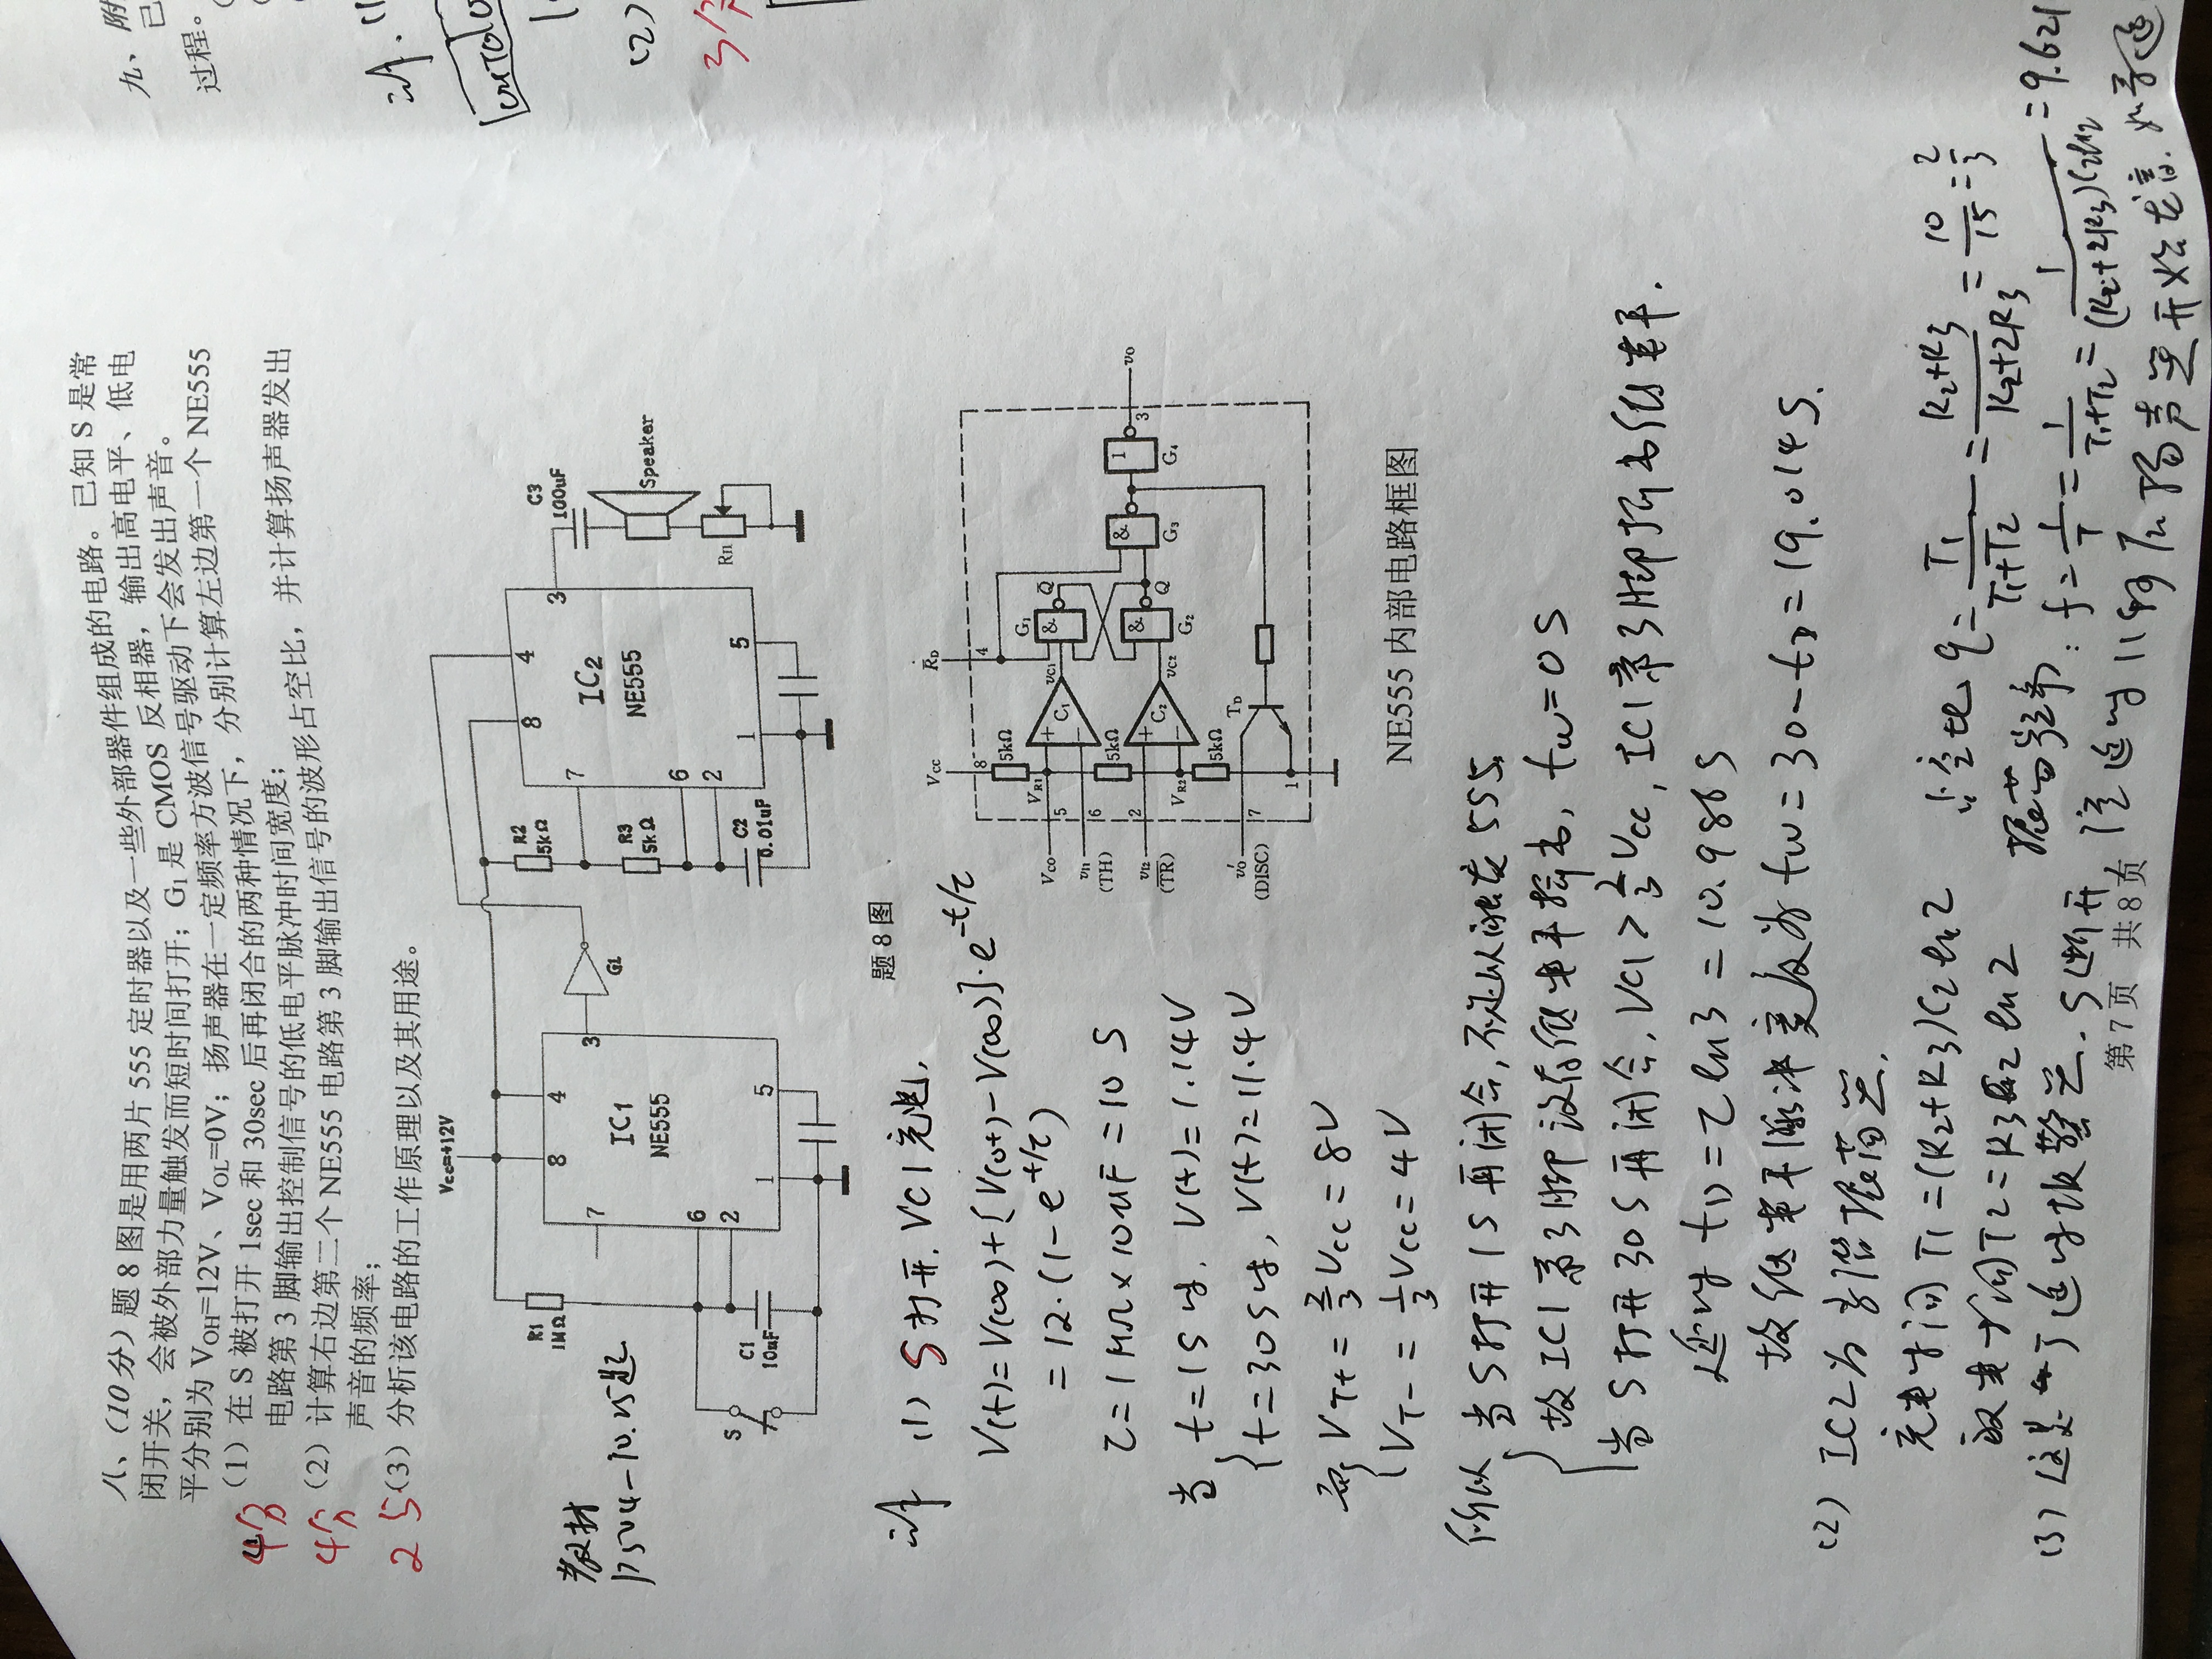 八、（10分）题8图是用两片555定时器以及一些外部器件组成的电路。已知S是常
闭开关，会被外部力量触发而短时间打开；G1是CMOS反相器，输出高电平、低电
平分别为VOH=12V、VOL=0V；扬声器在一定频率方波信号驱动下会发出声音。
4分
（1）在S被打开1sec和30sec后再闭合的两种情况下，分别计算左边第一个NE555
电路第3脚输出控制信号的低电平脉冲时间宽度；
4分
（2）计算右边第二个NE555电路第3脚输出信号的波形占空比，并计算扬声器发出
声音的频率；
2
（3）分析该电路的工作原理以及其用途。
九、附
已
过程。
(2)
3分
教材
P504-10.25题
Vcc=+12V
R1
1MΩ
8
4
7
3
IC1
NE555
6
2
1
5
S
C1
10uF
G1
R2
5kΩ
R3
5kΩ
C2
0.01uF
8
4
7
3
IC2
NE555
6
2
1
5
C3
100uF
Speaker
Rn
题8图
(1) S打开，VC1充电，
V(t)=V(∞)+[V(0+)-V(∞)]·e-t/τ
=12·(1-e+/τ)
τ=1MΩ×10uF=10 S
当 t=1S时，V(t)=1.14V
t=30S时，V(t)=11.4V
而 VT+ = 2/3 Vcc = 8V
VT- = 1/3 Vcc = 4V
VCC
R̄D
8
4
5kΩ
VR1
VCO
5
vI1
(TH)
6
+
-
C1
vC1
&
G1
Q̄
5kΩ
vI2
(TR)
2
VR2
+
-
C2
vC2
&
G2
Q
&
G3
1
G4
3
vO
5kΩ
v'O
(DISC)
7
TD
1
NE555内部电路框图
所以 当S打开1S再闭合，不足以触发555。
故IC1第3脚没有低电平输出，tw=0S
当S打开30S再闭合，VC1>2/3Vcc，IC1第3脚输出低电平。
延时 tD=τln3=10.986S
故低电平脉冲宽度为 tw=30-tD=19.014S.
(2) IC2为多谐振荡器.
充电时间T1=(R2+R3)C2ln2
放电时间T2=R3C2ln2
占空比 q=T1/(T1+T2)=(R2+R3)/(R2+2R3)=10/15=2/3
振荡频率：f=1/T=1/(T1+T2)=1/((R2+2R3)C2ln2)=9.621
(3) 这是一个延时报警器. S断开，
经延时11秒后扬声器开始发音.
第7页 共8页